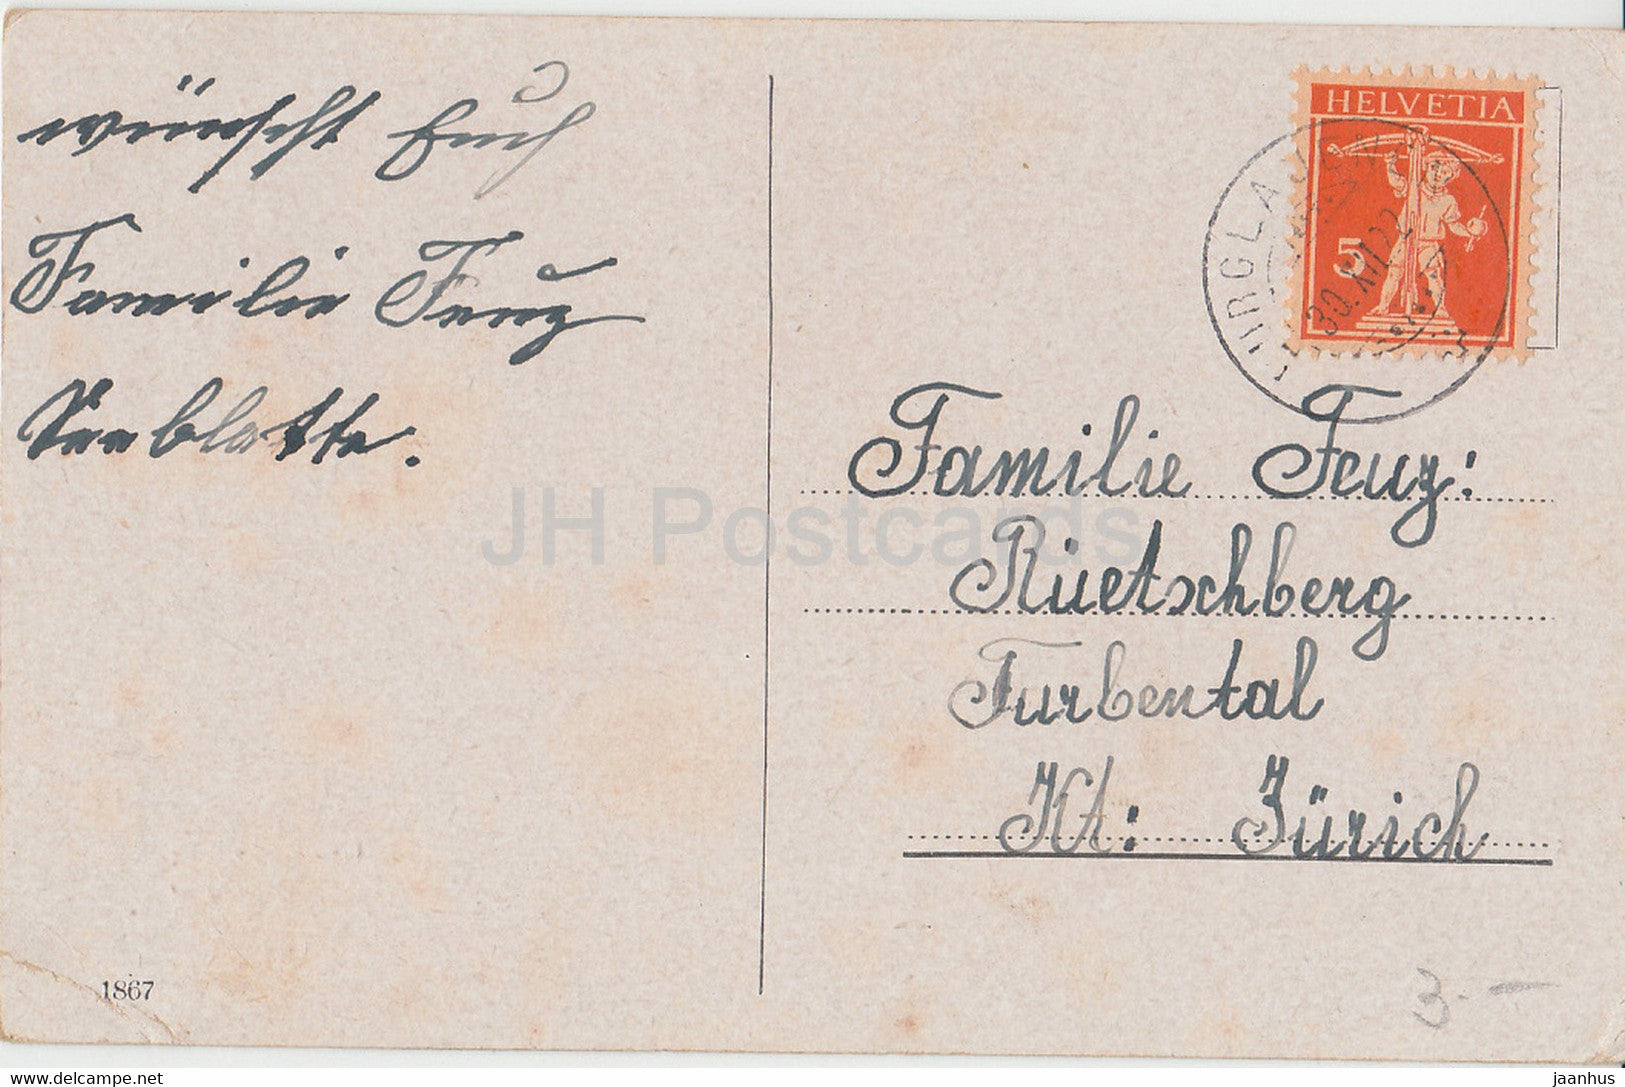 wünscht Euch
Familie Feuz
Seeblatte.
1867
HELVETIA
5
30.XII.22
Familie Feuz:
Ruetschberg
Turbental
Kt: Zürich
3.-
JH Postcards
delcampe.net
jaanhus